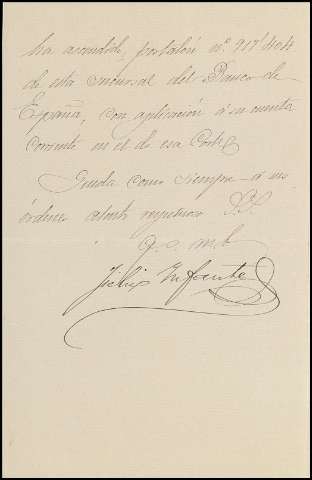 ha acordado, portalón nº 917,404
de esta sucursal del Banco de
España, con aplicación á su cuenta
corriente en el de esa Corte,
Queda como siempre á sus
órdenes atento seguro S.S.
q. s. m. b
Infante